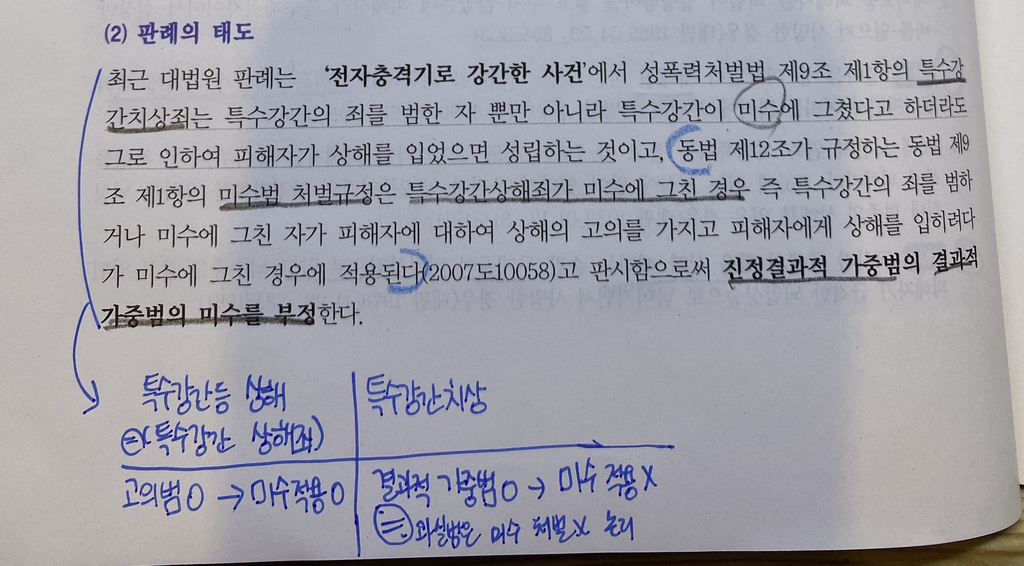 (2) 판례의 태도
최근 대법원 판례는 '전자충격기로 강간한 사건'에서 성폭력처벌법 제9조 제1항의 특수강
간치상죄는 특수강간의 죄를 범한 자 뿐만 아니라 특수강간이 미수에 그쳤다고 하더라도
그로 인하여 피해자가 상해를 입었으면 성립하는 것이고, 동법 제12조가 규정하는 동법 제9
조 제1항의 미수범 처벌규정은 특수강간상해죄가 미수에 그친 경우 즉 특수강간의 죄를 범하
거나 미수에 그친 자가 피해자에 대하여 상해의 고의를 가지고 피해자에게 상해를 입히려다
가 미수에 그친 경우에 적용된다(2007도10058)고 판시함으로써 진정결과적 가중범의 결과적
가중범의 미수를 부정한다.
특수강간등 상해
특수강간치상
특수강간 상해죄)
고의범O → 미수적용O
결과적 가중범O → 미수 적용X
과실범은 미수 처벌X 논리